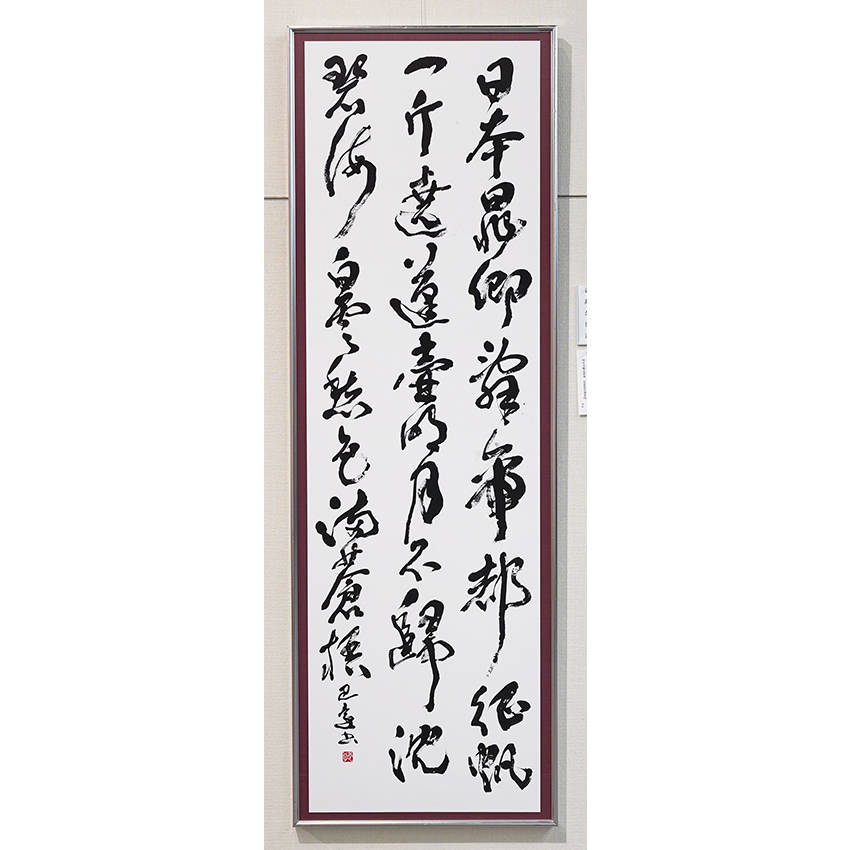 日本晁卿辭帝都征帆
一片遶蓬壷明月不歸沈
碧海白雲愁色滿蒼梧